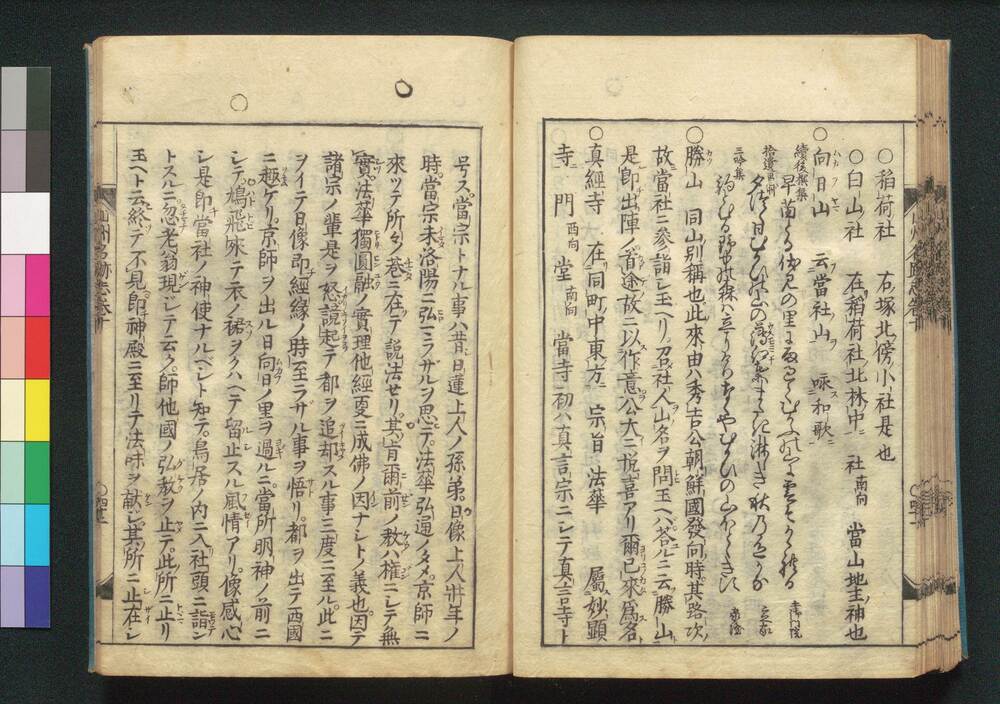 ○稻荷社 右塚北傍小社是也
○白山社 在稻荷社北林中ニ 社南向 當山地主神也
○向日山 云當社山ヲ 咏ス和歌ニ
續後撰集
拾遺
三吟集
○勝山 同山別稱也此來由ハ秀吉公朝鮮國發向時其路次ノ
故當社ニ參詣シ玉ヘリ召社人山名ヲ問玉ヘハ答ルニ云勝山ト
是即出陣ノ首途故ニ以作意公大ニ悦喜アリ爾已來爲名ト
○真經寺 在同町中東方 宗旨 法華 屬妙顯
寺 門西向 堂南向 當寺初ハ真言宗ニシテ真言寺ト
号ス當宗トナル事ハ昔日蓮上人ノ孫弟日像上人壯年ノ
時當宗未洛陽ニ弘ラザルヲ思テ法華弘通ノタメ京師ニ
來ツテ所々ノ巷ニ在テ說法セリ其旨爾前ノ教ハ權ニシテ無
實法華獨圓融ノ實理他經更ニ成佛ノ因ナシトノ義也因テ
諸宗ノ輩是ヲ怒說起テ都ヲ追却スル事三度ニ至ル此ニ
ヲイテ日像即經緣ノ時至ラザル事ヲ悟リ都ヲ出テ西國
ニ趣ケリ京師ヲ出ル日向日ノ里ヲ過ルニ當所明神ノ前ニ
シテ鳩飛來テ衣ノ裾ヲクハヘテ留止スル風情アリ像感心
シ是即當社ノ神使ナルベシト知テ鳥居ノ内ニ入社頭ニ詣ン
トスルニ忽老翁現ジテ云ク師他國ノ弘教ヲ止テ此所ニ止リ
玉ヘト云終テ不見即神殿ニ至リテ法味ヲ獻ジ其所ニ止在シ
山州名跡志卷十